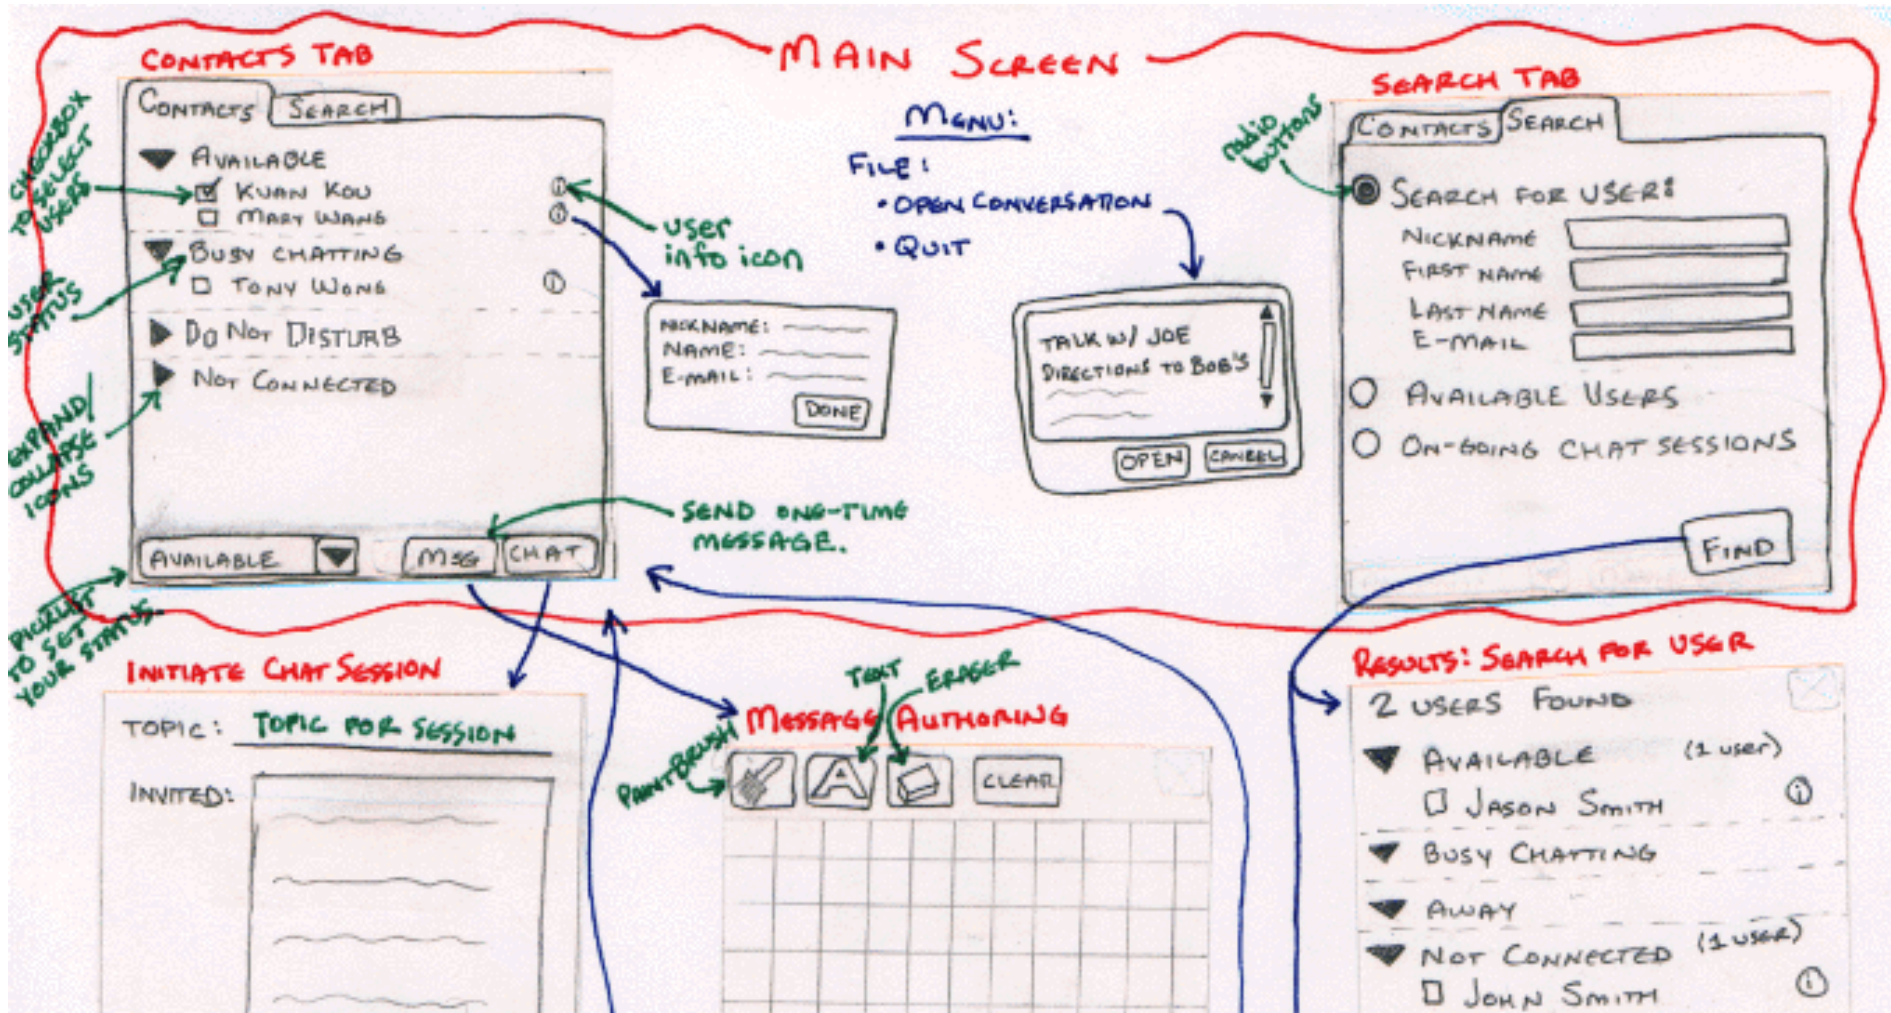 MAIN SCREEN
CONTACTS TAB
CONTACTS
SEARCH
AVAILABLE
KUAN KOU
MARY WANG
BUSY CHATTING
TONY WONG
DO NOT DISTURB
NOT CONNECTED
AVAILABLE
MSG
CHAT
CHECKBOX
TO SELECT
USERS
USER
STATUS
EXPAND/
COLLAPSE
ICONS
PICKLIST
TO SET
YOUR STATUS.
user
info icon
SEND ONE-TIME
MESSAGE.
NICKNAME:
NAME:
E-MAIL:
DONE
MENU:
FILE:
• OPEN CONVERSATION
• QUIT
TALK W/ JOE
DIRECTIONS TO BOB'S
OPEN
CANCEL
SEARCH TAB
radio
buttons
CONTACTS
SEARCH
SEARCH FOR USER:
NICKNAME
FIRST NAME
LAST NAME
E-MAIL
AVAILABLE USERS
ON-GOING CHAT SESSIONS
FIND
INITIATE CHAT SESSION
TOPIC: TOPIC FOR SESSION
INVITED:
MESSAGE AUTHORING
PAINTBRUSH
TEXT
ERASER
A
CLEAR
RESULTS: SEARCH FOR USER
2 USERS FOUND
AVAILABLE (1 USER)
JASON SMITH
BUSY CHATTING
AWAY
NOT CONNECTED (1 USER)
JOHN SMITH